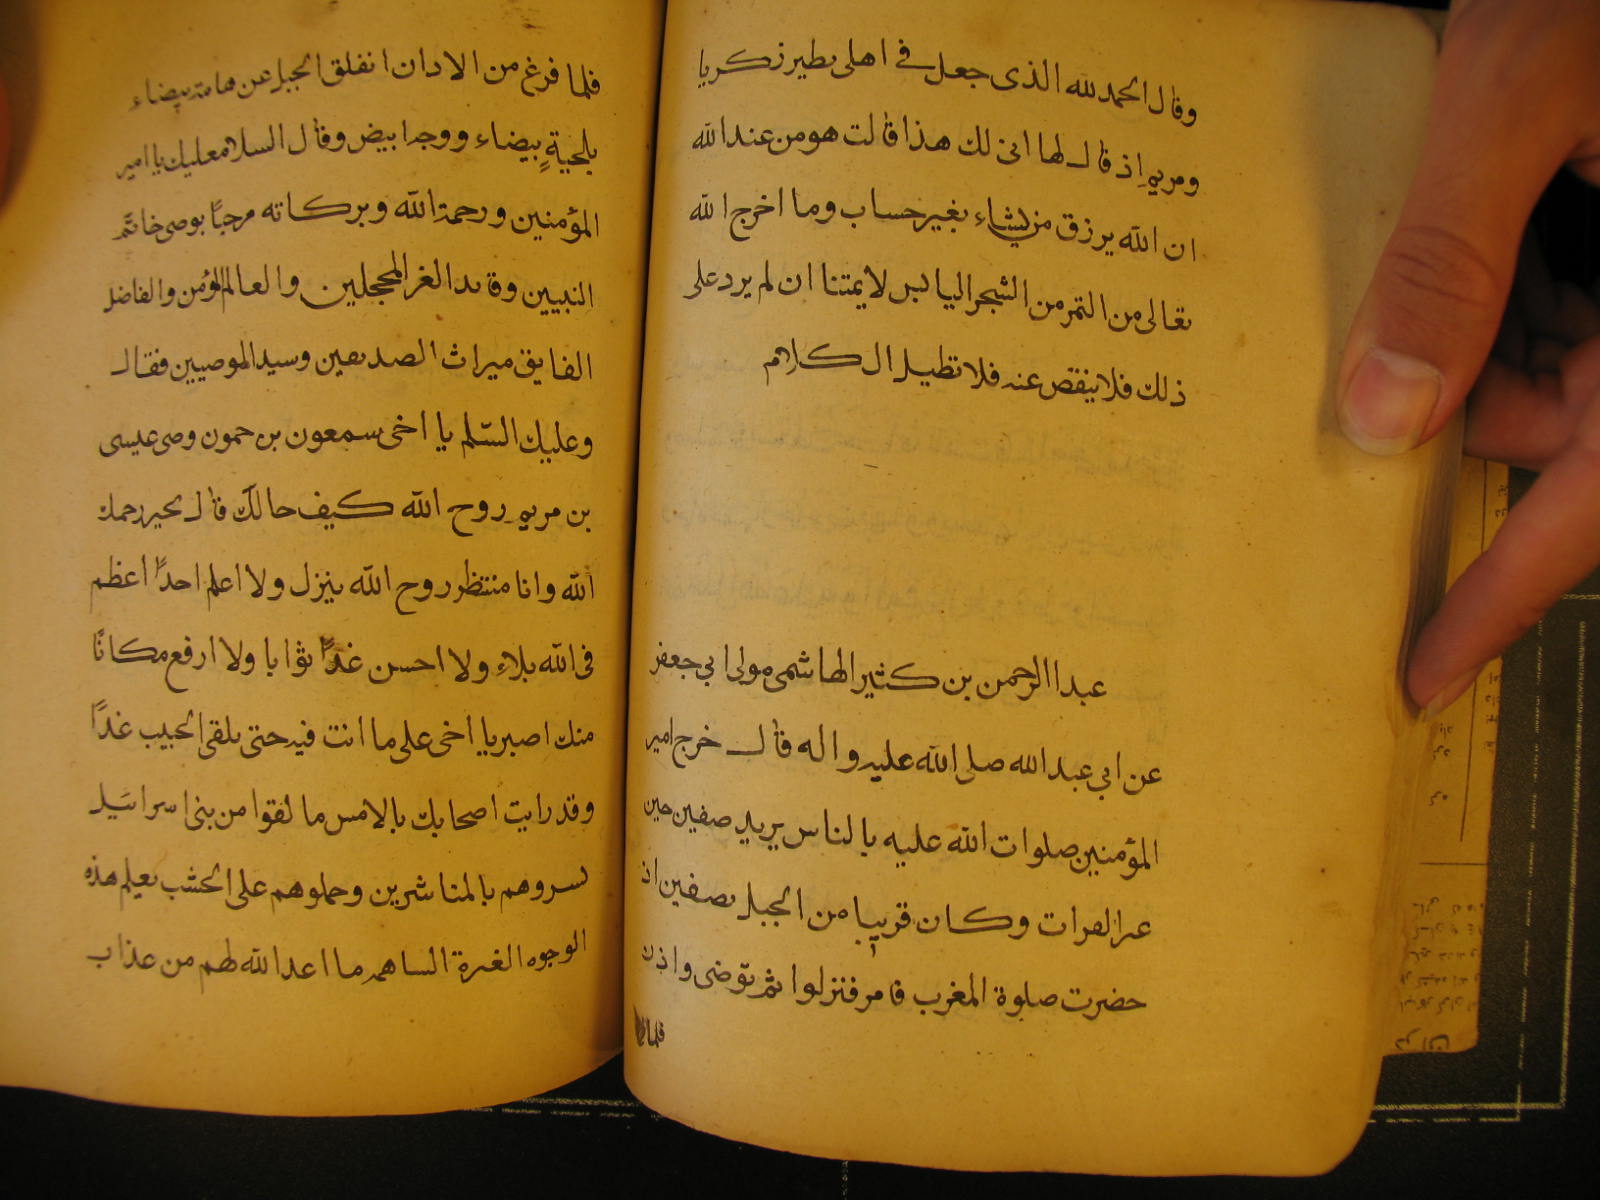 وقال الحمد لله الذى جعل فے اهلى نطير زكريا
ومريم اذ قال لها انى لك هذا قالت هو من عند الله
ان الله يرزق من يشاء بغير حساب وما اخرج الله
تعالى من التمر من الشجر اليابس لا يمتنا ان لم يرد على
ذلك فلا ينقص عنه فلا تطيل الكلام
عبدا الرحمن بن كثير الهاشمى مولى ابي جعفر
عن ابي عبد الله صلى الله عليه واله قال خرج امير
المؤمنين صلوات الله عليه بالناس يريد صفين حين
عبر الفرات وكان قريبا من الجبل بصفين اذ
حضرت صلوة المغرب فامر فنزلوا ثم توضى واذن
فلما
فلما فرغ من الاذان انفلق الجبل عن هامة بيضاء
بلحية بيضاء ووجه ابيض وقال السلام عليك يا امير
المؤمنين ورحمة الله وبركاته مرحبًا بوصى خاتم
النبيين وقايد الغر المحجلين والعالم المؤمن والفاضل
الفايق ميراث الصديقين وسيد الموصيين فقال
وعليك السّلم يا اخى سمعون بن حمون وصى عيسى
بن مريم روح الله كيف حالك قال بخير رحمك
الله وانا منتظر روح الله ينزل ولا اعلم احدًا اعظم
فى الله بلاء ولا احسن غدًا ثوابا ولا ارفع مكانًا
منك اصبر يا اخى على ما انت فيه حتى تلقى الحبيب غدًا
وقد رايت اصحابك بالامس ما لقوا من بنى اسرائيل
نسروهم بالمناشرين وحملوهم على الخشب تعلم هذه
الوجوه الغبرة الساهمه ما اعد الله لهم من عذاب